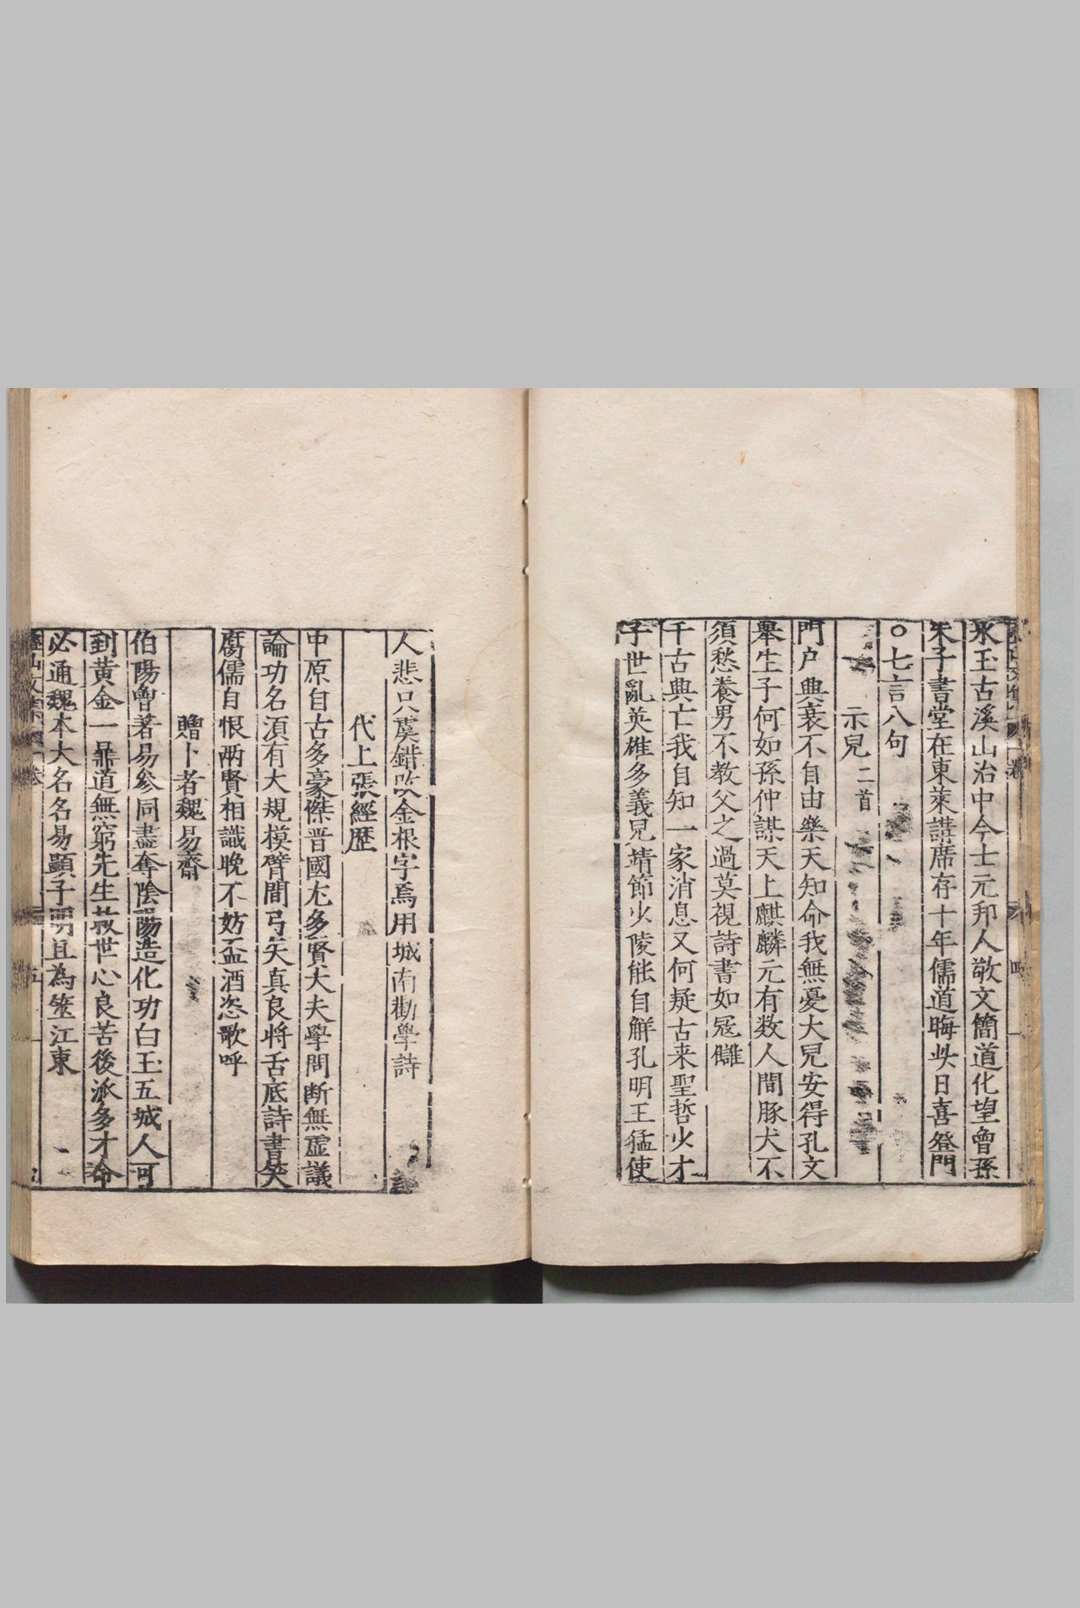 氷玉古溪山治中今士元邦人敬文簡道化望曾孫
朱子書堂在東萊講席存十年儒道晦此日喜登門
○七言八句
示兒二首
門户興衰不自由樂天知命我無憂大兒安得孔文
舉生子何如孫仲謀天上麒麟元有数人間豚犬不
須愁養男不教父之過莫視詩書如冦讎
千古興亡我自知一家消息又何疑古来聖哲少才
子世亂英雄多義兒靖節少陵能自觧孔明王猛使
人悲只虞錯改金根字爲用城南勸學詩
代上張經歷
中原自古多豪傑晋國尤多賢大夫學問断無虚議
論功名湏有大規模臂間弓矢真良將舌底詩書笑
腐儒自恨兩賢相識晚不妨盃酒恣歌呼
贈卜者魏易齋
伯陽曾著易參同盡奪陰陽造化功白玉五城人可
到黄金一鼎道無窮先生救世心良苦後派多才命
必通魏本大名名易顯子明且為筮江東
疊山文集 卷
五